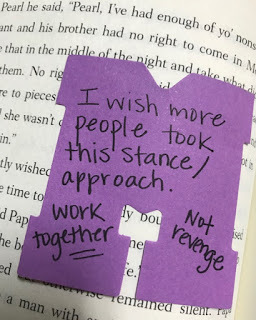 Pearl he said, "Pearl, I've had enough of yo'
and his brother had no right to come in
that in the middle of the night and take what
them. No
to pieces
she wasn't
in."
wished
time to
I wish more
people took
this stance/
approach.
work
together
Not
revenge
otherwise remained silent.
a man with